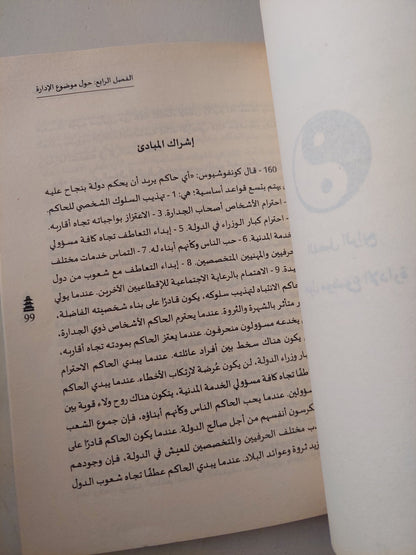 الفصل الرابع: حول موضوع الإدارة
إشراك المبادئ
160 - قال كونفوشيوس: «أي حاكم يريد أن يحكم دولة بنجاح عليه
بتسع قواعد أساسية؛ هي: 1 - تهذيب السلوك الشخصي للحاكم.
احترام الأشخاص أصحاب الجدارة. 3 - الاعتزاز بواجباته تجاه أقاربه.
احترام كبار الوزراء في الدولة. 5 - إبداء التعاطف تجاه كافة مسؤولي
الخدمة المدنية. 6 - حب الناس وكأنهم أبناء له. 7 - التماس خدمات مختلف
الحرفيين والمهنيين المتخصصين. 8 - إبداء التعاطف مع شعوب من دول
9 - الاهتمام بالرعاية الاجتماعية للإقطاعيين الآخرين. عندما يولي
حاكم الانتباه لتهذيب سلوكه، يكون قادرًا على بناء شخصيته الفاضلة،
متأثر بالشهرة والثروة. عندما يحترم الحاكم الأشخاص ذوي الجدارة،
يخدعه مسؤولون منحرفون. عندما يعتز الحاكم بمودته تجاه أقاربه،
يكون هناك سخط بين أفراد عائلته. عندما يبدي الحاكم الاحترام
وزراء الدولة، لن يكون عُرضة لارتكاب الأخطاء. عندما يبدي الحاكم
تجاه كافة مسؤولي الخدمة المدنية، يتكون هناك روح ولاء قوية بين
عندما يحب الحاكم الناس وكأنهم أبناؤه، فإن جموع الشعب
يكرسون أنفسهم من أجل صالح الدولة. عندما يكون الحاكم قادرًا على
مختلف الحرفيين والمتخصصين للعيش في الدولة، فإن وجودهم
يزيد ثروة وعوائد البلاد. عندما يبدي الحاكم عطفًا تجاه شعوب الدول
99